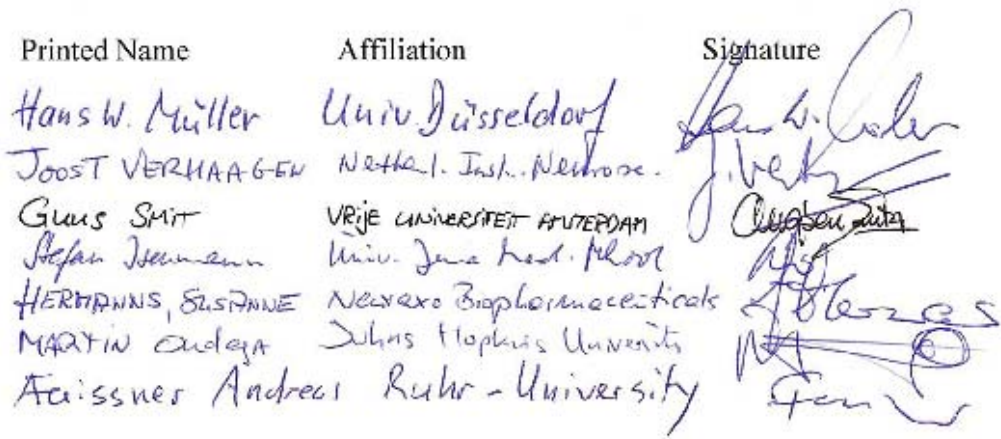 Printed Name Affiliation Signature
Hans W. Müller Univ. Düsseldorf
JOOST VERHAAGEN Netherl. Inst. Neurosc. J. Verh
Guus SMIT VRIJE UNIVERSITEIT AMSTERDAM
Stefan Isenmann Univ. Jena Med. School
HERMANNS, SUSANNE Neuraxo Biopharmaceuticals
MARTIN Oudega Johns Hopkins University
Faissner Andreas Ruhr-University